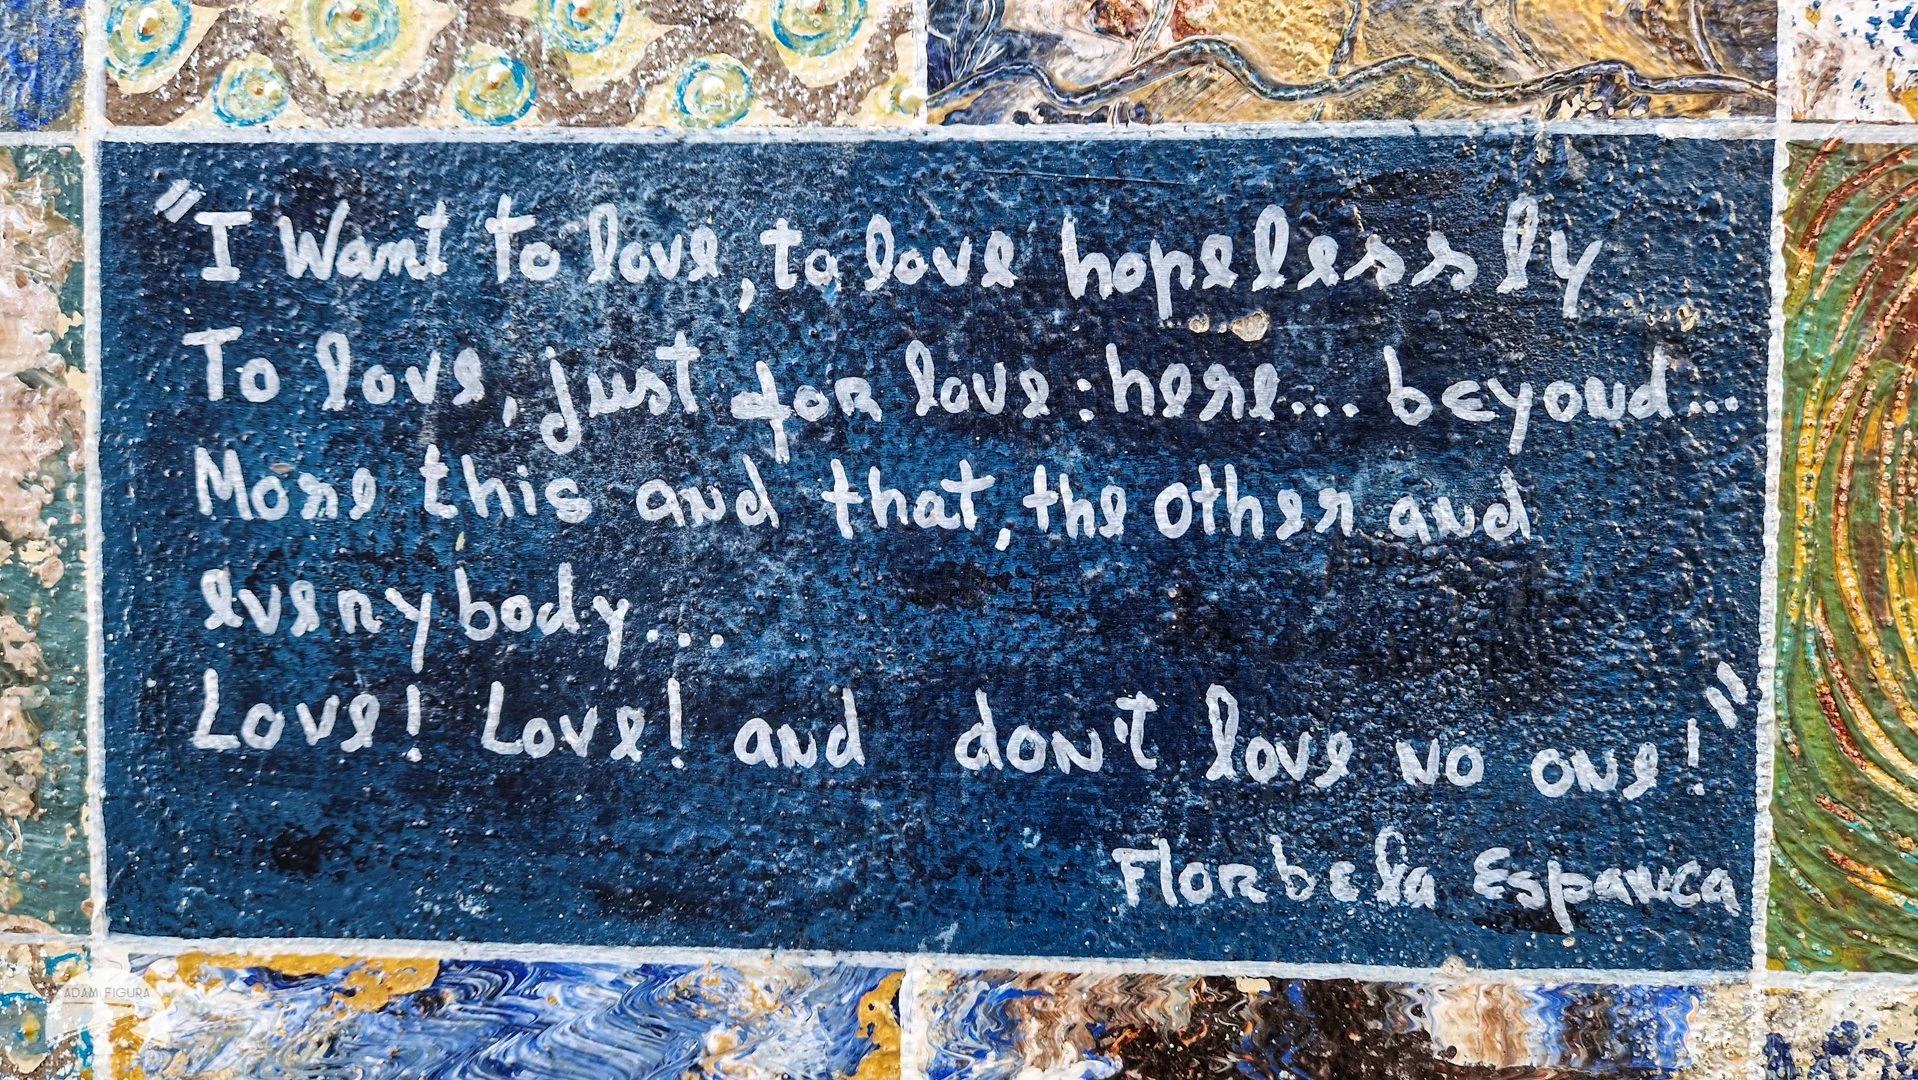 "I Want to love, to love hopelessly
To love, just for love: here... beyond...
More this and that, the other and
everybody...
Love! Love! and don't love no one!"
Florbela Espanca
ADAM FIGURA